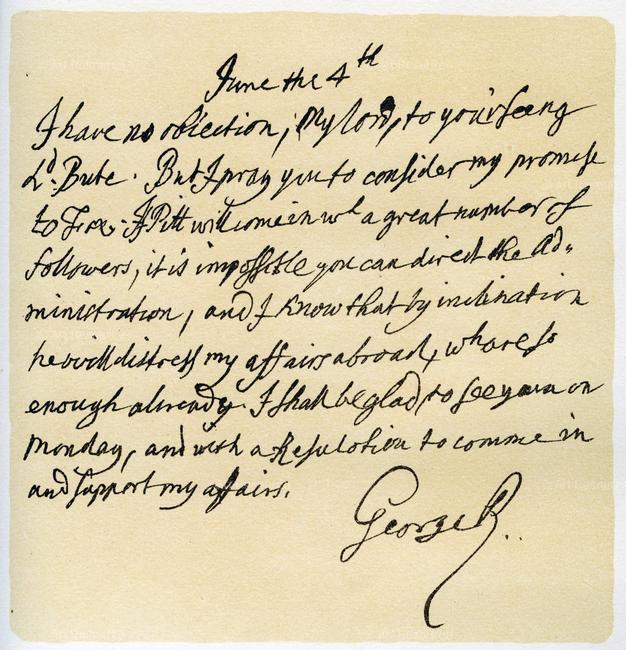 June the 4th
I have no obiection, My lord, to your seeing
Ld. Bute. But I pray you to consider my promise
to Fox. If Pitt will come in wt a great number of
followers, it is impossible you can direct the Ad-
ministration, and I know that by inclination
he will distress my affairs abroad, whare so
enough already. I shall be glad to see you on
Monday, and with a Resulotion to comme in
and support my affairs.
George R.